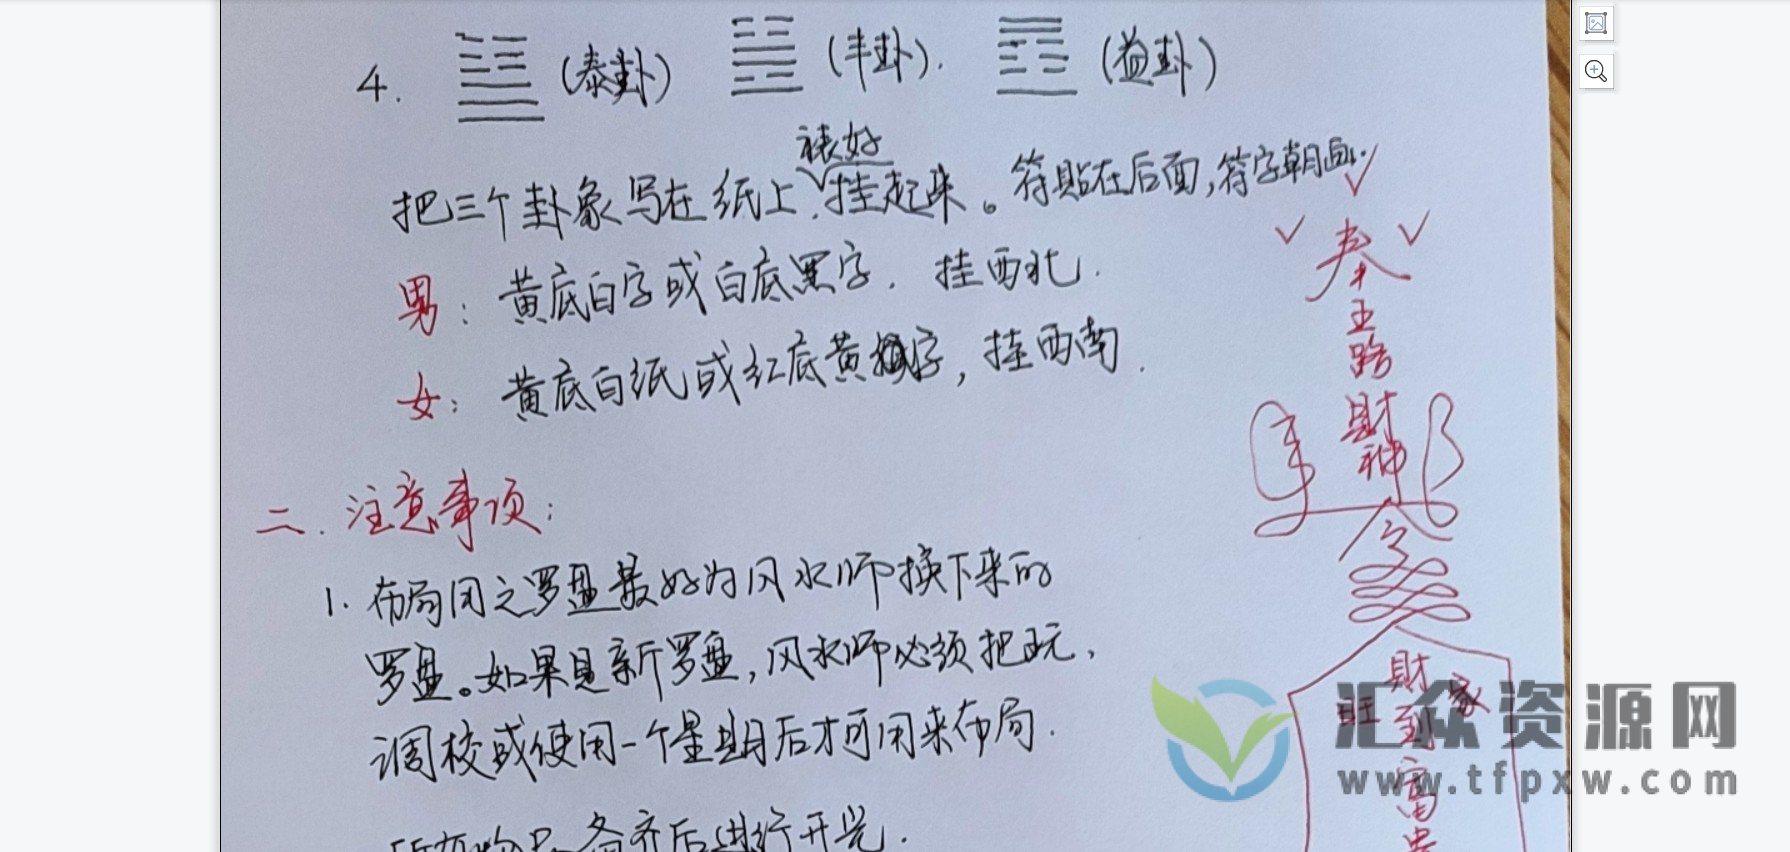 4. (泰卦) (丰卦). (益卦)
裱好
把三个卦象写在纸上.挂起来。符贴在后面,符字朝画.
男: 黄底白字或白底黑字. 挂西北.
女: 黄底白纸或红底黄字, 挂西南.
二. 注意事项:
1. 布局用之罗盘最好为风水师换下来的
罗盘。如果是新罗盘,风水师必须把玩,
调校或使用一个星期后才可用来布局.
所有物品备齐后进行开光.
奉
五
路
財
神
令
旺 財 家
到
富
贵
汇众资源网
www.tfpxw.com